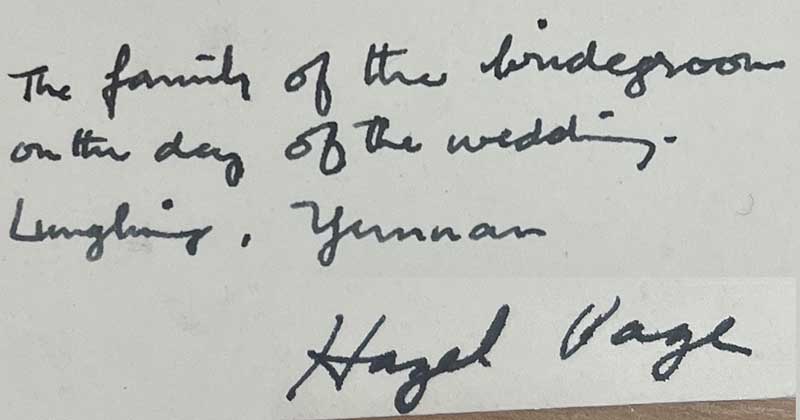 The family of the bridegroom
on the day of the wedding.
Lungling, Yunnan
Hazel Page